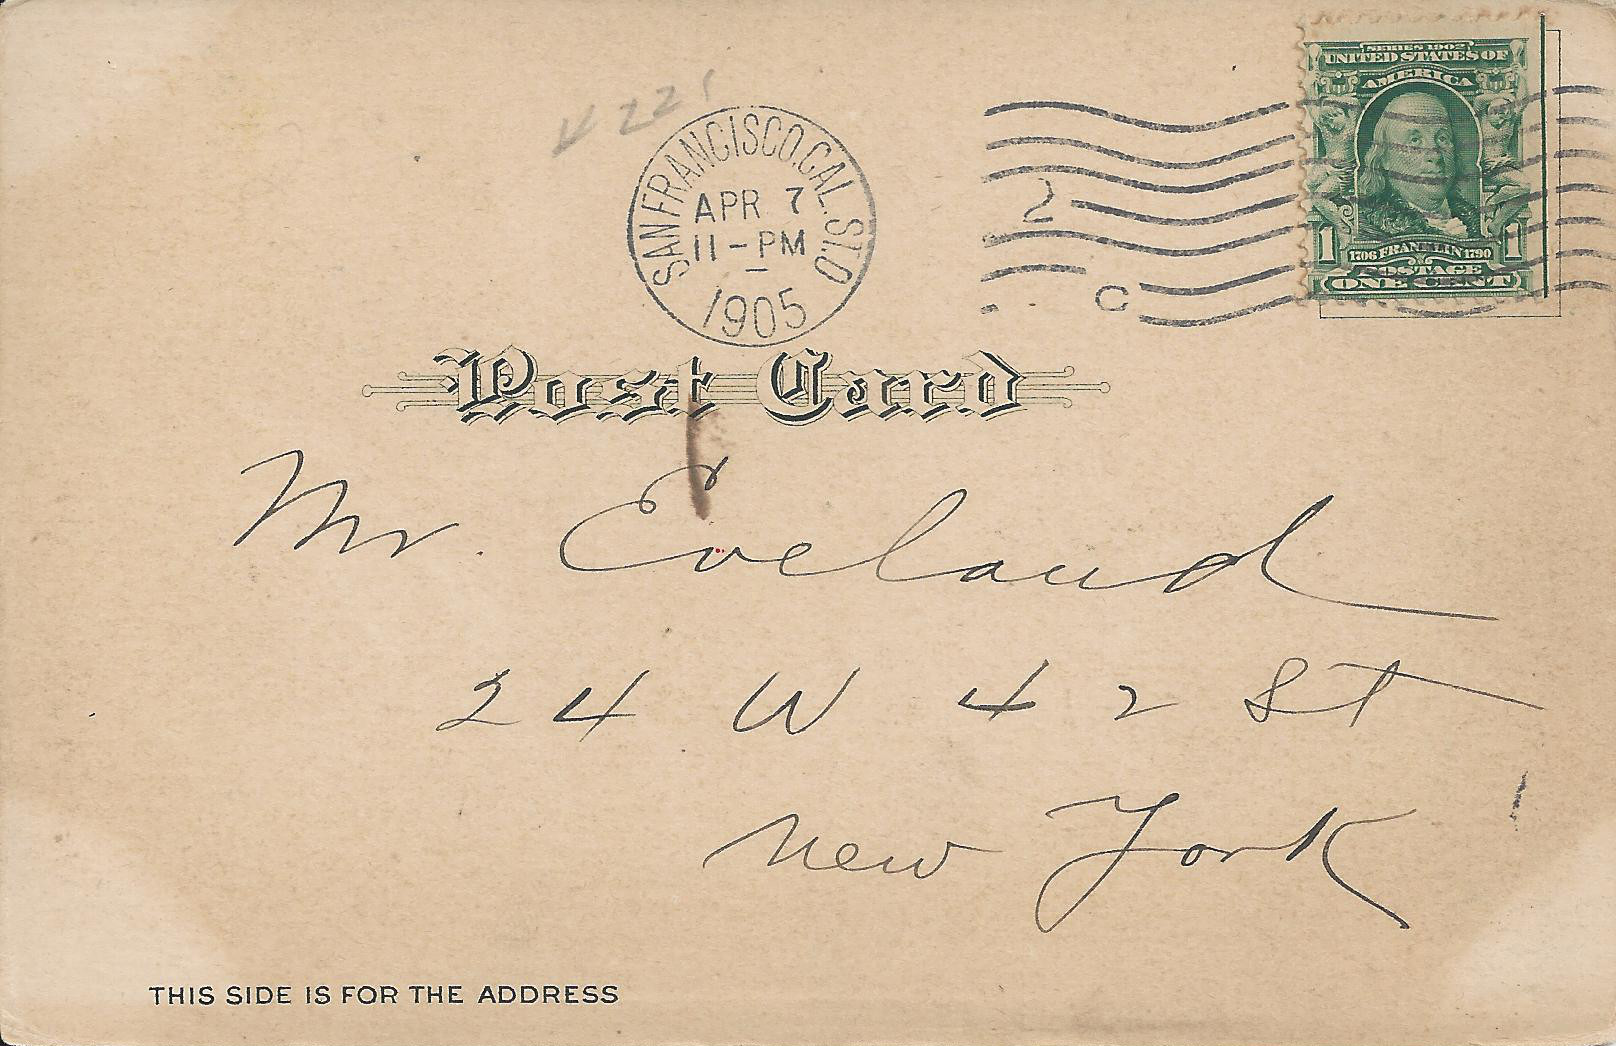 SERIES 1902
UNITED STATES OF
AMERICA
1 1
1706 FRANKLIN 1790
POSTAGE
ONE CENT
SAN FRANCISCO, CAL. ST. O
APR 7
11-PM
1905
2
C
Post Card
Mr. Eveland
24 W 42 St
New York
THIS SIDE IS FOR THE ADDRESS